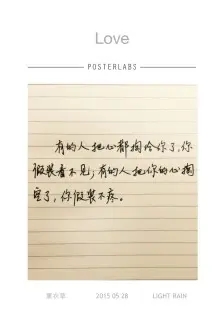 Love
POSTERLABS
有的人把心都掏给你了,你
假装看不见;有的人把你的心掏
空了,你假装不疼。
2015.05.28
LIGHT RAIN